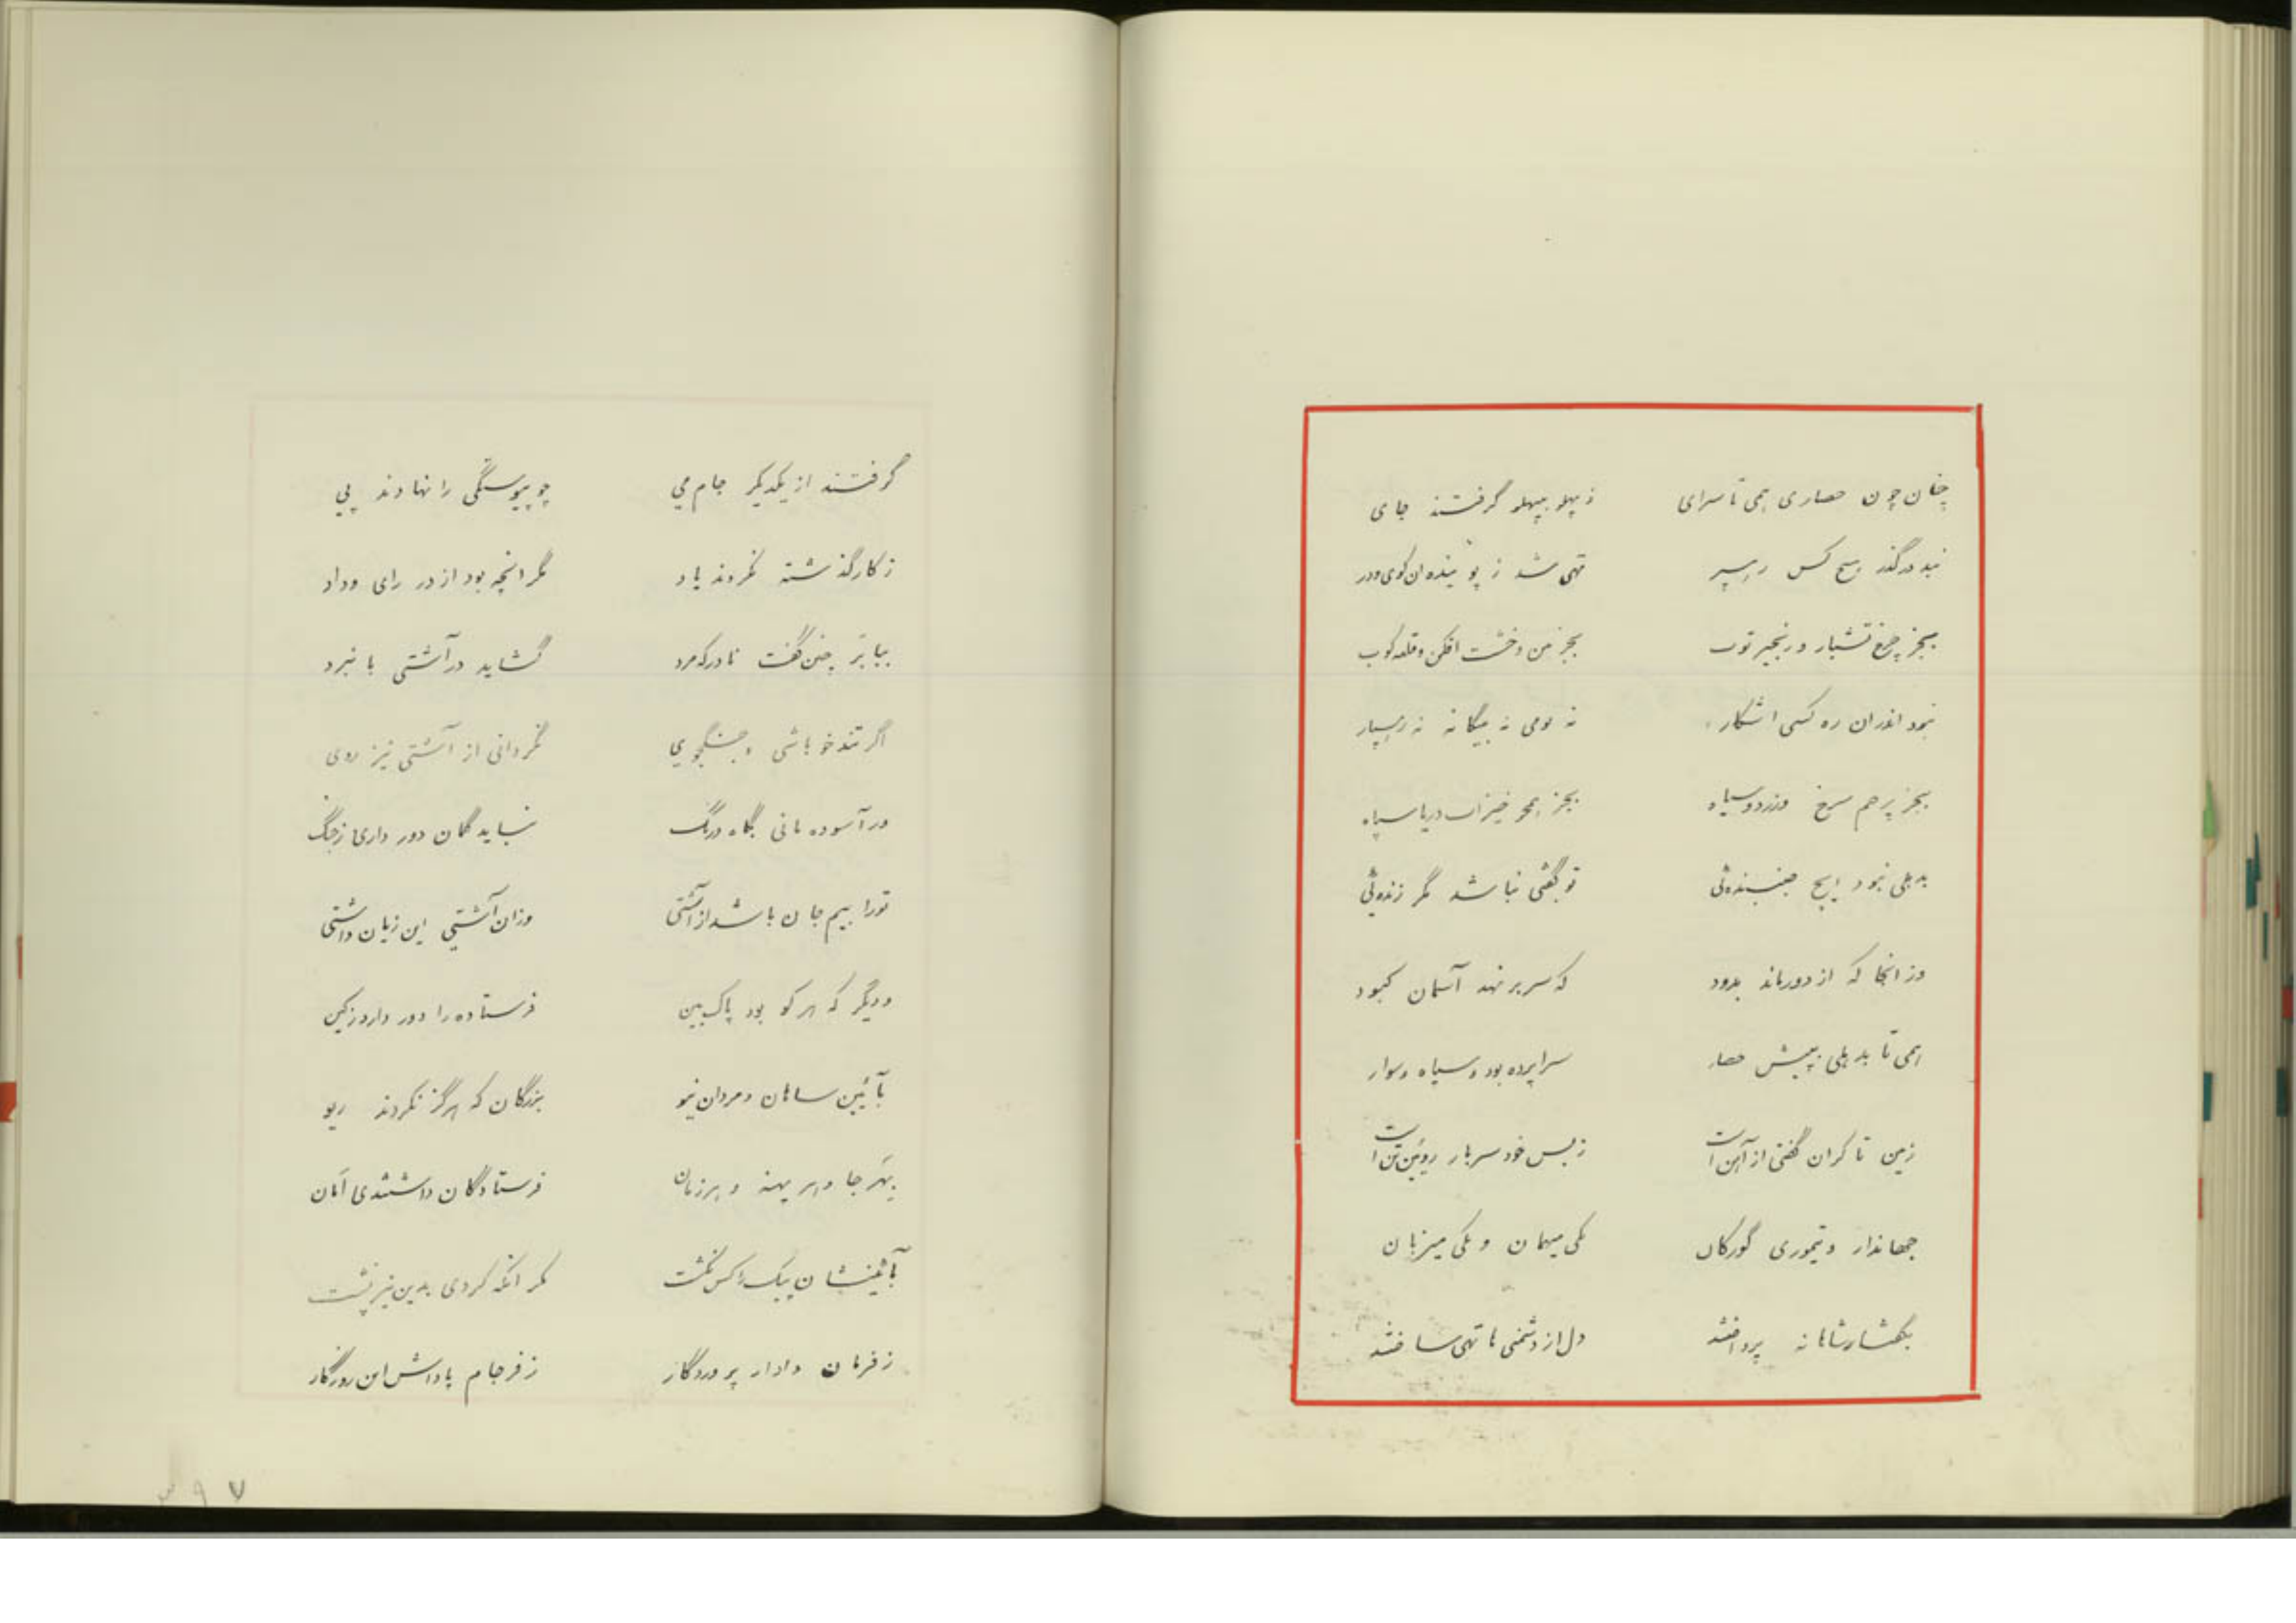 چنان چون حصاری همی تا سرای ز پهلو بپهلو گرفتند جای
نبد در گذر هیچ کس رهسپر تهی شد ز پوینده ان کوی و در
بجز چرخ و زنجیر توب بجز من و خشت افکن و قلعه کوب
نبود اندران ره کسی اشکار نه بومی نه بیگانه نه رهسپار
بجز پرچم سرخ و زرد و سیاه بجز همچو خیزاب دریا سپاه
بدهلی نبود ایچ جنبنده‌ئی تو گفتی نباشد مگر زنده‌ئی
وز انجا که از دور ماند بدود که سر بر نهد آسمان کبود
همی تا بدهلی بپیش حصار سراپرده بود و سپاه و سوار
زمین تا کران گفتی از آهن است ز بس خود سربار روئین تن است
جهاندار و تیموری گورکان یکی میهمان و یکی میزبان
بگفتار شاهانه پرداختند دل از دشمنی ها تهی ساختند
گرفتند از یکدیگر جام می چو پیوستگی را نهادند پی
ز کار گذشته نکردند یاد مگر انچه بود از در رای و داد
ببابر چنن گفت نادر که مرد گشاید در آشتی با نبرد
اگر تندخو باشی و جنگجوی نگردانی از آشتی نیز روی
ور آسوده مانی بگاه درنگ نباید گمان دور داری ز جنگ
تو را بیم جان باشد از آشتی وزان آشتی این زیان داشتی
و دیگر که هر کو بود پاک بین فرستاده را دور دارد ز کین
بآئین ساهان و مردان نیو بزرگان که هرگز نکردند ریو
بهر جا و هر پهنه و هر زمان فرستادگان داشتندی امان
بآئینشان پیک را کس نکشت مگر انکه کردی بدین نیز پشت
ز فرمان دادار پروردگار ز فرجام پاداش این روزگار
۳۹۷